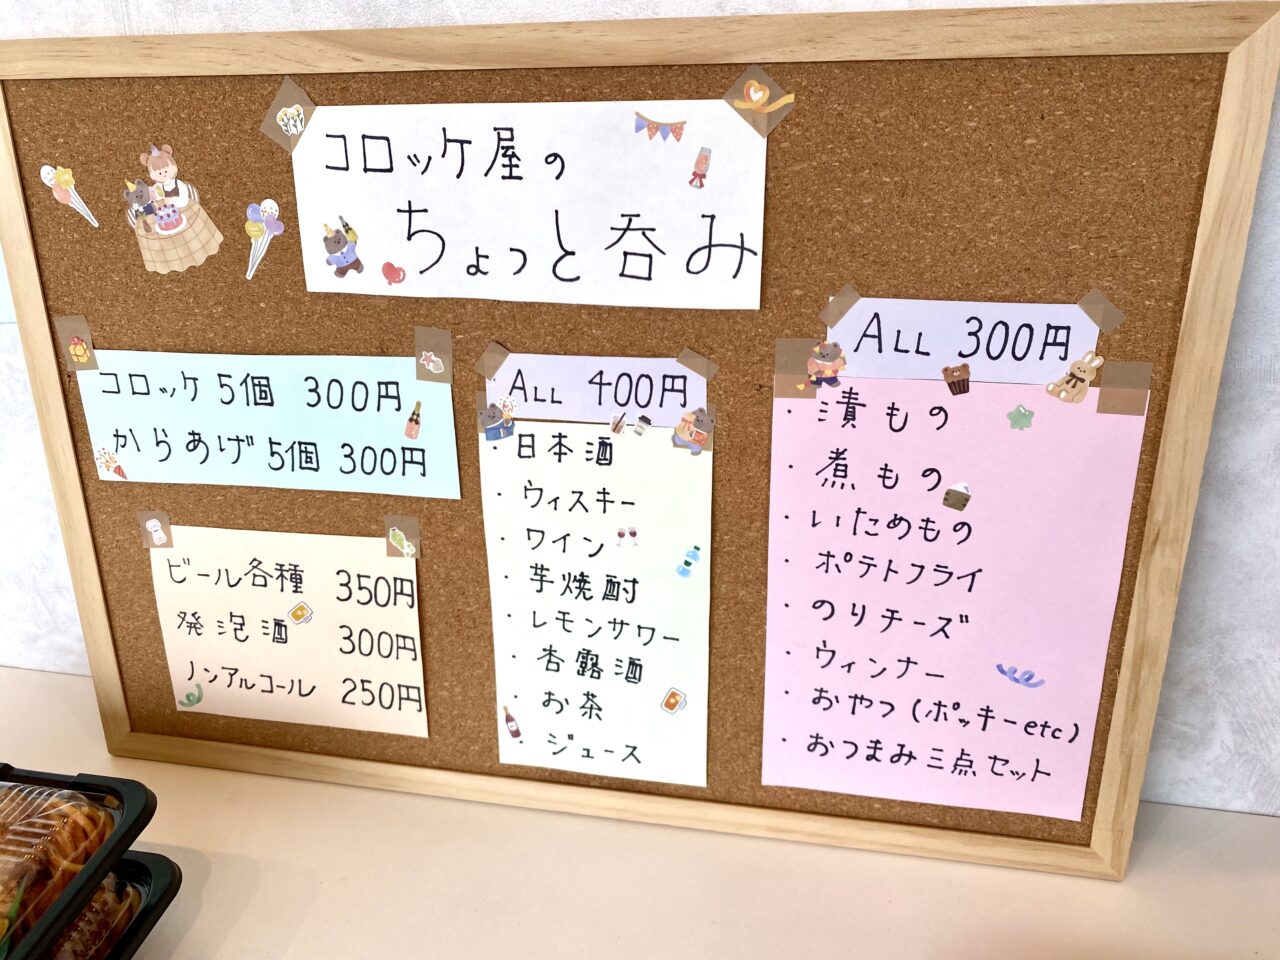 コロッケ屋の
ちょっと呑み
コロッケ 5個 300円
からあげ 5個 300円
ビール各種 350円
発泡酒 300円
ノンアルコール 250円
ALL 400円
・日本酒
・ウィスキー
・ワイン
・芋焼酎
・レモンサワー
・杏露酒
・お茶
・ジュース
ALL 300円
・漬もの
・煮もの
・いためもの
・ポテトフライ
・のりチーズ
・ウィンナー
・おやつ(ポッキーetc)
・おつまみ三点セット